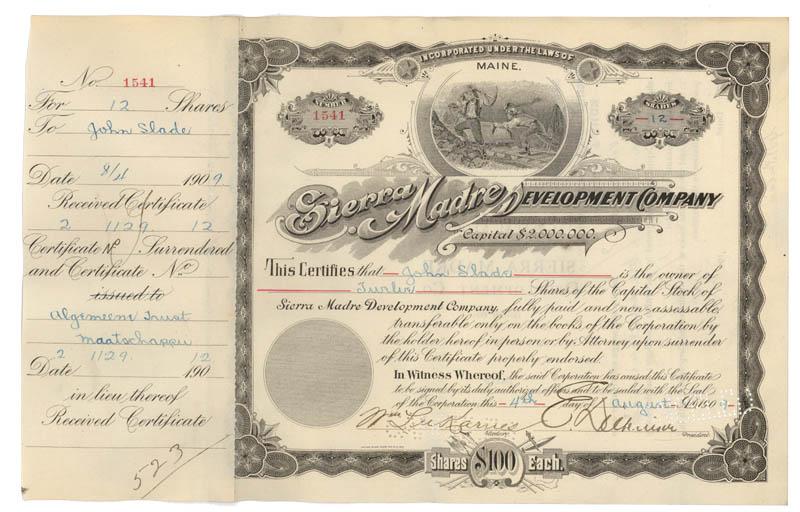 No. 1541
For 12 Shares
To John Slade
Date 8/4 1909
Received Certificate
2 1129 12
Certificate No Surrendered
and Certificate No
issued to
Algemeene Trust
Maatschappy
2 1129. 12
Date 190
in lieu thereof
Received Certificate
523
INCORPORATED UNDER THE LAWS OF
MAINE.
NUMBER
1541
SHARES
12
Sierra Madre DEVELOPMENT COMPANY
Capital $2,000,000.
This Certifies that John Slade is the owner of
Shares of the Capital Stock of
Sierra Madre Development Company, fully paid and non-assessable,
transferable only on the books of the Corporation by
the holder hereof in person or by Attorney upon surrender
of this Certificate properly endorsed.
In Witness Whereof, the said Corporation has caused this Certificate
to be signed by its duly authorized officers and to be sealed with the Seal
of the Corporation this 4th day of August A.D. 1909
Secretary
President
Shares $100 Each.